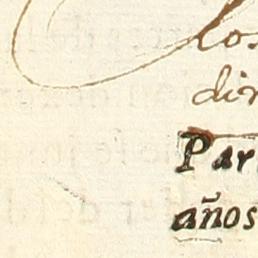 los
dir
Par
años